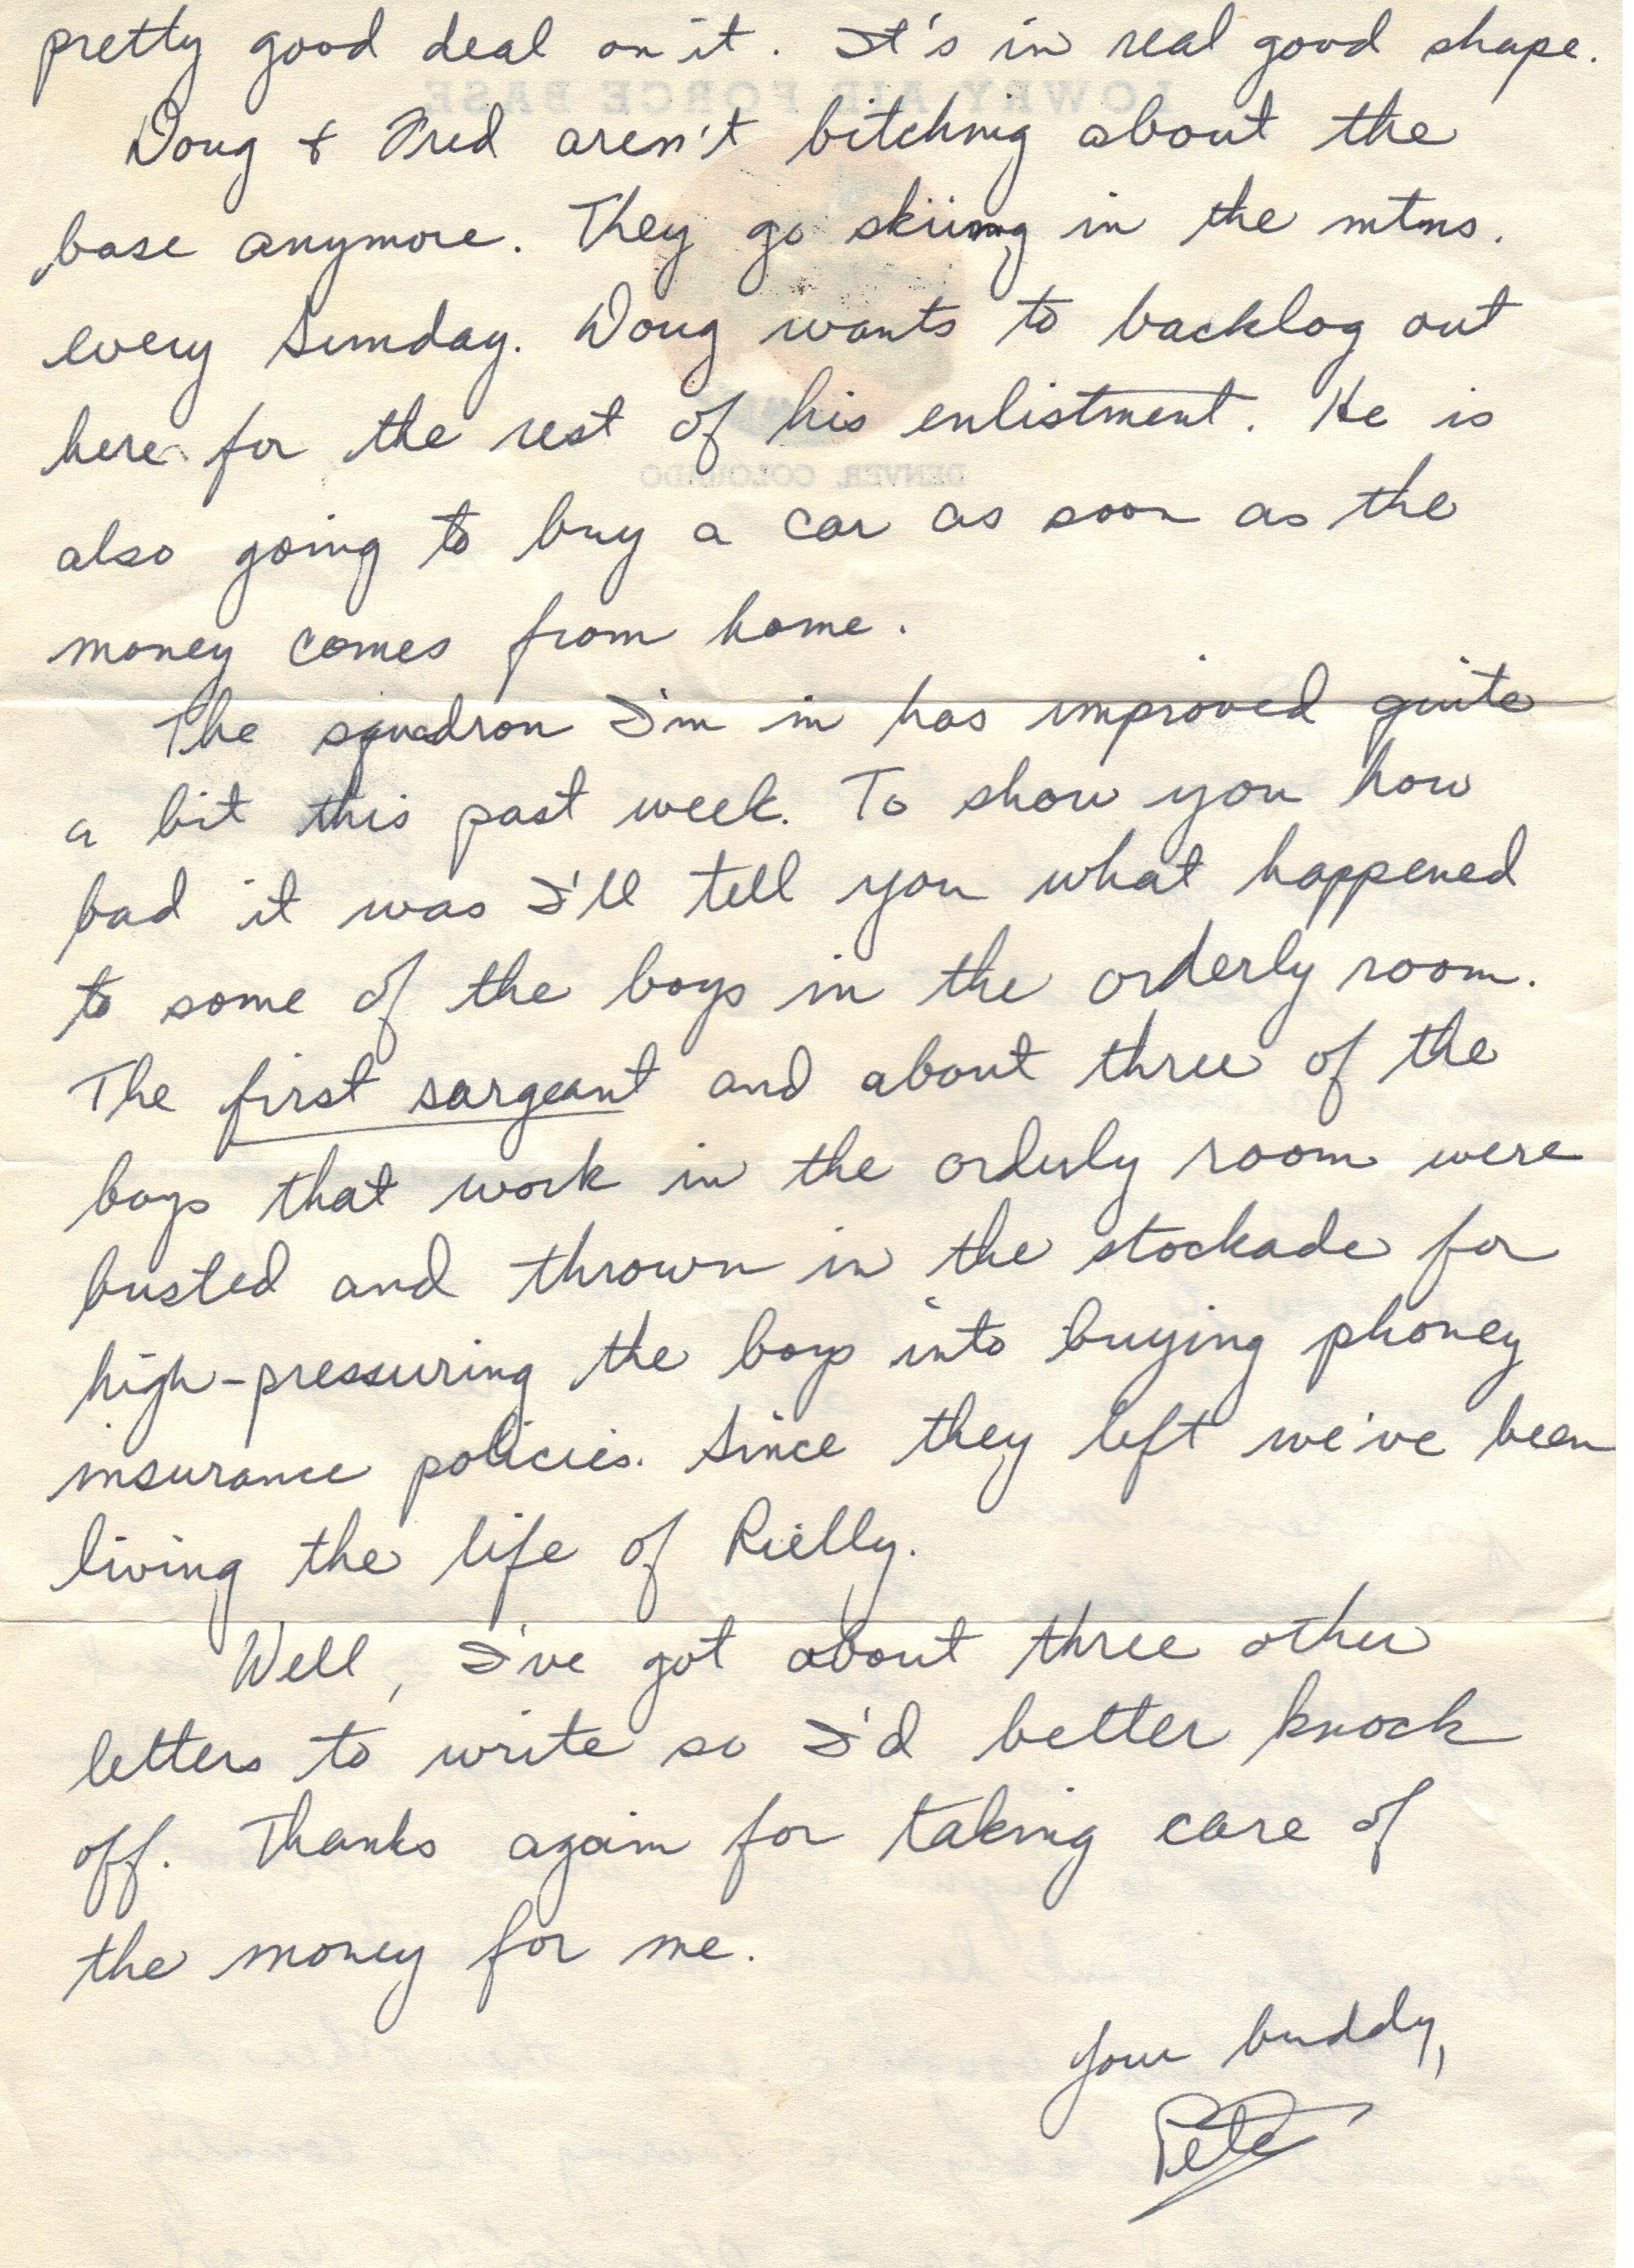 pretty good deal on it. It's in real good shape.
LOWRY AIR FORCE BASE
Doug & Fred aren't bitching about the
base anymore. They go skiing in the mtns.
every Sunday. Doug wants to backlog out
here for the rest of his enlistment. He is
DENVER, COLORADO
also going to buy a car as soon as the
money comes from home.
The squadron I'm in has improved quite
a bit this past week. To show you how
bad it was I'll tell you what happened
to some of the boys in the orderly room.
The first sargeant and about three of the
boys that work in the orderly room were
busted and thrown in the stockade for
high-pressuring the boys into buying phoney
insurance policies. Since they left we've been
living the life of Rielly.
Well, I've got about three other
letters to write so I'd better knock
off. Thanks again for taking care of
the money for me.
Your buddy,
Pete